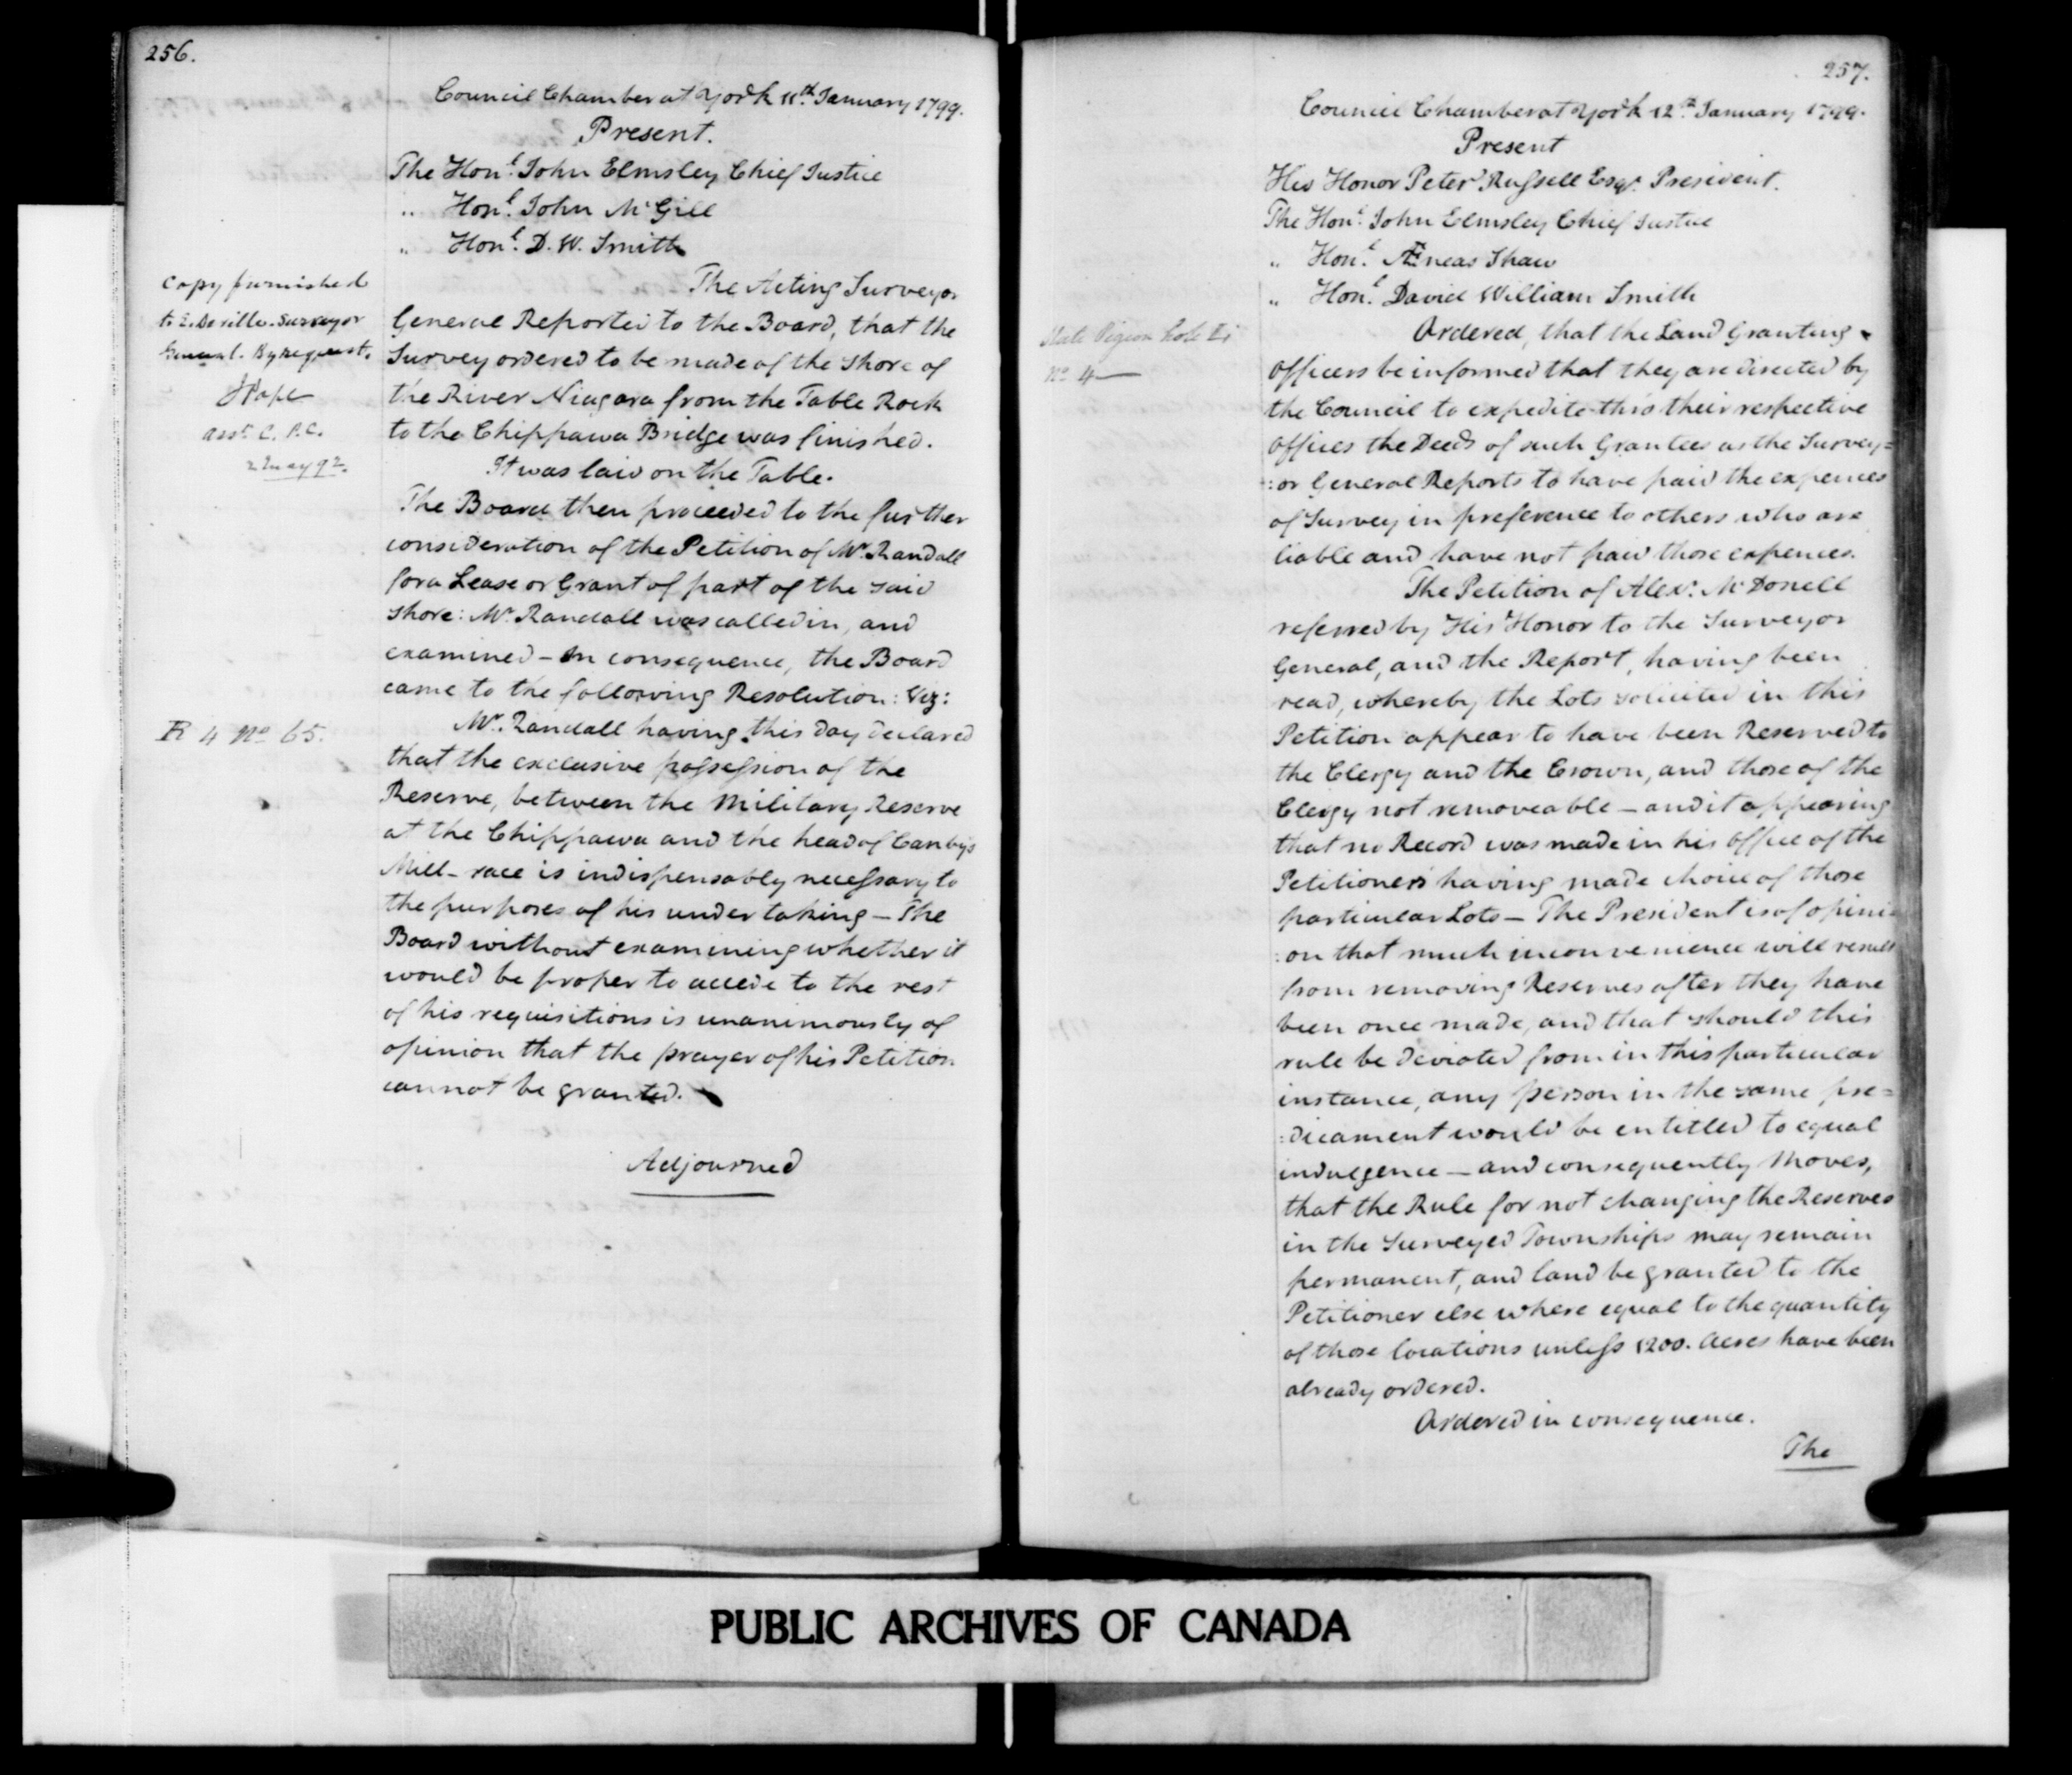 256.
Council Chamber at York 11th January 1799.
Present.
The Honl. John Elmsley Chief Justice
" Honl. John McGill
" Honl. D. W. Smith
The Acting Surveyor
General Reported to the Board, that the
Survey ordered to be made of the Shore of
the River Niagara from the Table Rock
to the Chippawa Bridge was finished.
It was laid on the Table.
The Board then proceeded to the further
consideration of the Petition of Mr. Randall
for a Lease or Grant of part of the said
Shore: Mr. Randall was called in, and
examined – In consequence, the Board
came to the following Resolution: Viz:
Mr. Randall having this day declared
that the exclusive possession of the
Reserve, between the Military Reserve
at the Chippawa and the head of Canby's
Mill-race is indispensably necessary to
the purposes of his undertaking – The
Board without examining whether it
would be proper to accede to the rest
of his requisitions is unanimously of
opinion that the prayer of his Petition
cannot be granted.
Adjourned
Copy furnished
to E. Deville. Surveyor
General. By request.
Asst. C. P. C.
2 May 92.
R 4 No 65.
257.
Council Chamber at York 12th January 1799.
Present
His Honor Peter Russell Esqr. President.
The Honl. John Elmsley Chief Justice
" Honl. Æneas Shaw
" Honl. David William Smith
Ordered, that the Land Granting
Officers be informed that they are directed by
the Council to expedite thro their respective
Offices the Deeds of such Grantees as the Survey=
:or General Reports to have paid the expences
of Survey in preference to others who are
liable and have not paid those expences.
The Petition of Alexr. McDonell
referred by His Honor to the Surveyor
General, and the Report, having been
read, whereby the Lots solicited in this
Petition appear to have been Reserved to
the Clergy and the Crown, and those of the
Clergy not removeable – and it appearing
that no Record was made in his Office of the
Petitioners having made choice of those
particular Lots – The President is of opini
:on that much inconvenience will result
from removing Reserves after they have
been once made, and that should this
rule be deviated from in this particular
instance, any person in the same pre=
:dicament would be entitled to equal
indulgence – and consequently Moves,
that the Rule for not changing the Reserves
in the Surveyed Townships may remain
permanent, and land be granted to the
Petitioner else where equal to the quantity
of those locations unless 1200. Acres have been
already ordered.
Ordered in consequence.
The
State Pigeon hole
No 4
PUBLIC ARCHIVES OF CANADA